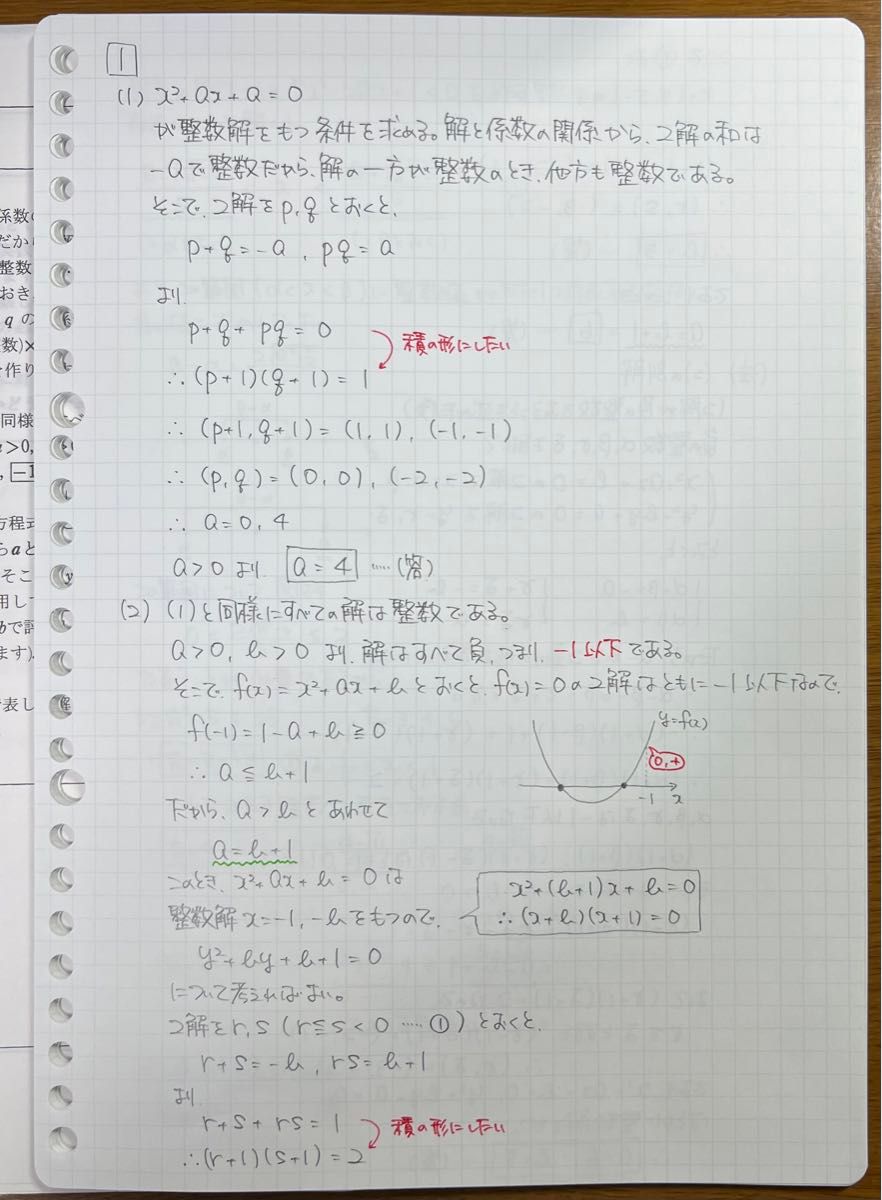 1
(1) x²+ax+a=0
が整数解をもつ条件を求める。解と係数の関係から、2解の和は
-aで整数だから、解の一方が整数のとき、他方も整数である。
そこで、2解をp,qとおくと、
p+q=-a, pq=a
より、
p+q+pq=0
積の形にしたい
∴(p+1)(q+1)=1
∴(p+1,q+1)=(1,1),(-1,-1)
∴(p,q)=(0,0),(-2,-2)
∴a=0,4
a>0より、a=4……(答)
(2) (1)と同様にすべての解は整数である。
a>0, b>0より、解はすべて負、つまり、-1以下である。
そこで、f(x)=x²+ax+bとおくと、f(x)=0の2解はともに-1以下なので、
f(-1)=1-a+b≧0
∴a≦b+1
y=f(x)
0,+
-1 x
だから、a>bとあわせて
a=b+1
このとき、x²+ax+b=0は
整数解x=-1,-bをもつので、
x²+(b+1)x+b=0
∴(x+b)(x+1)=0
y²+by+b+1=0
について考えればよい。
2解をr,s(r≦s<0……①)とおくと、
r+s=-b, rs=b+1
より
r+s+rs=1
積の形にしたい
∴(r+1)(s+1)=2
系数の
だから
整数
おき
qの
数)×
を作り
同様
a>0,
-1
方程式
らaと
そこ
用して
bで評
ます).
表し